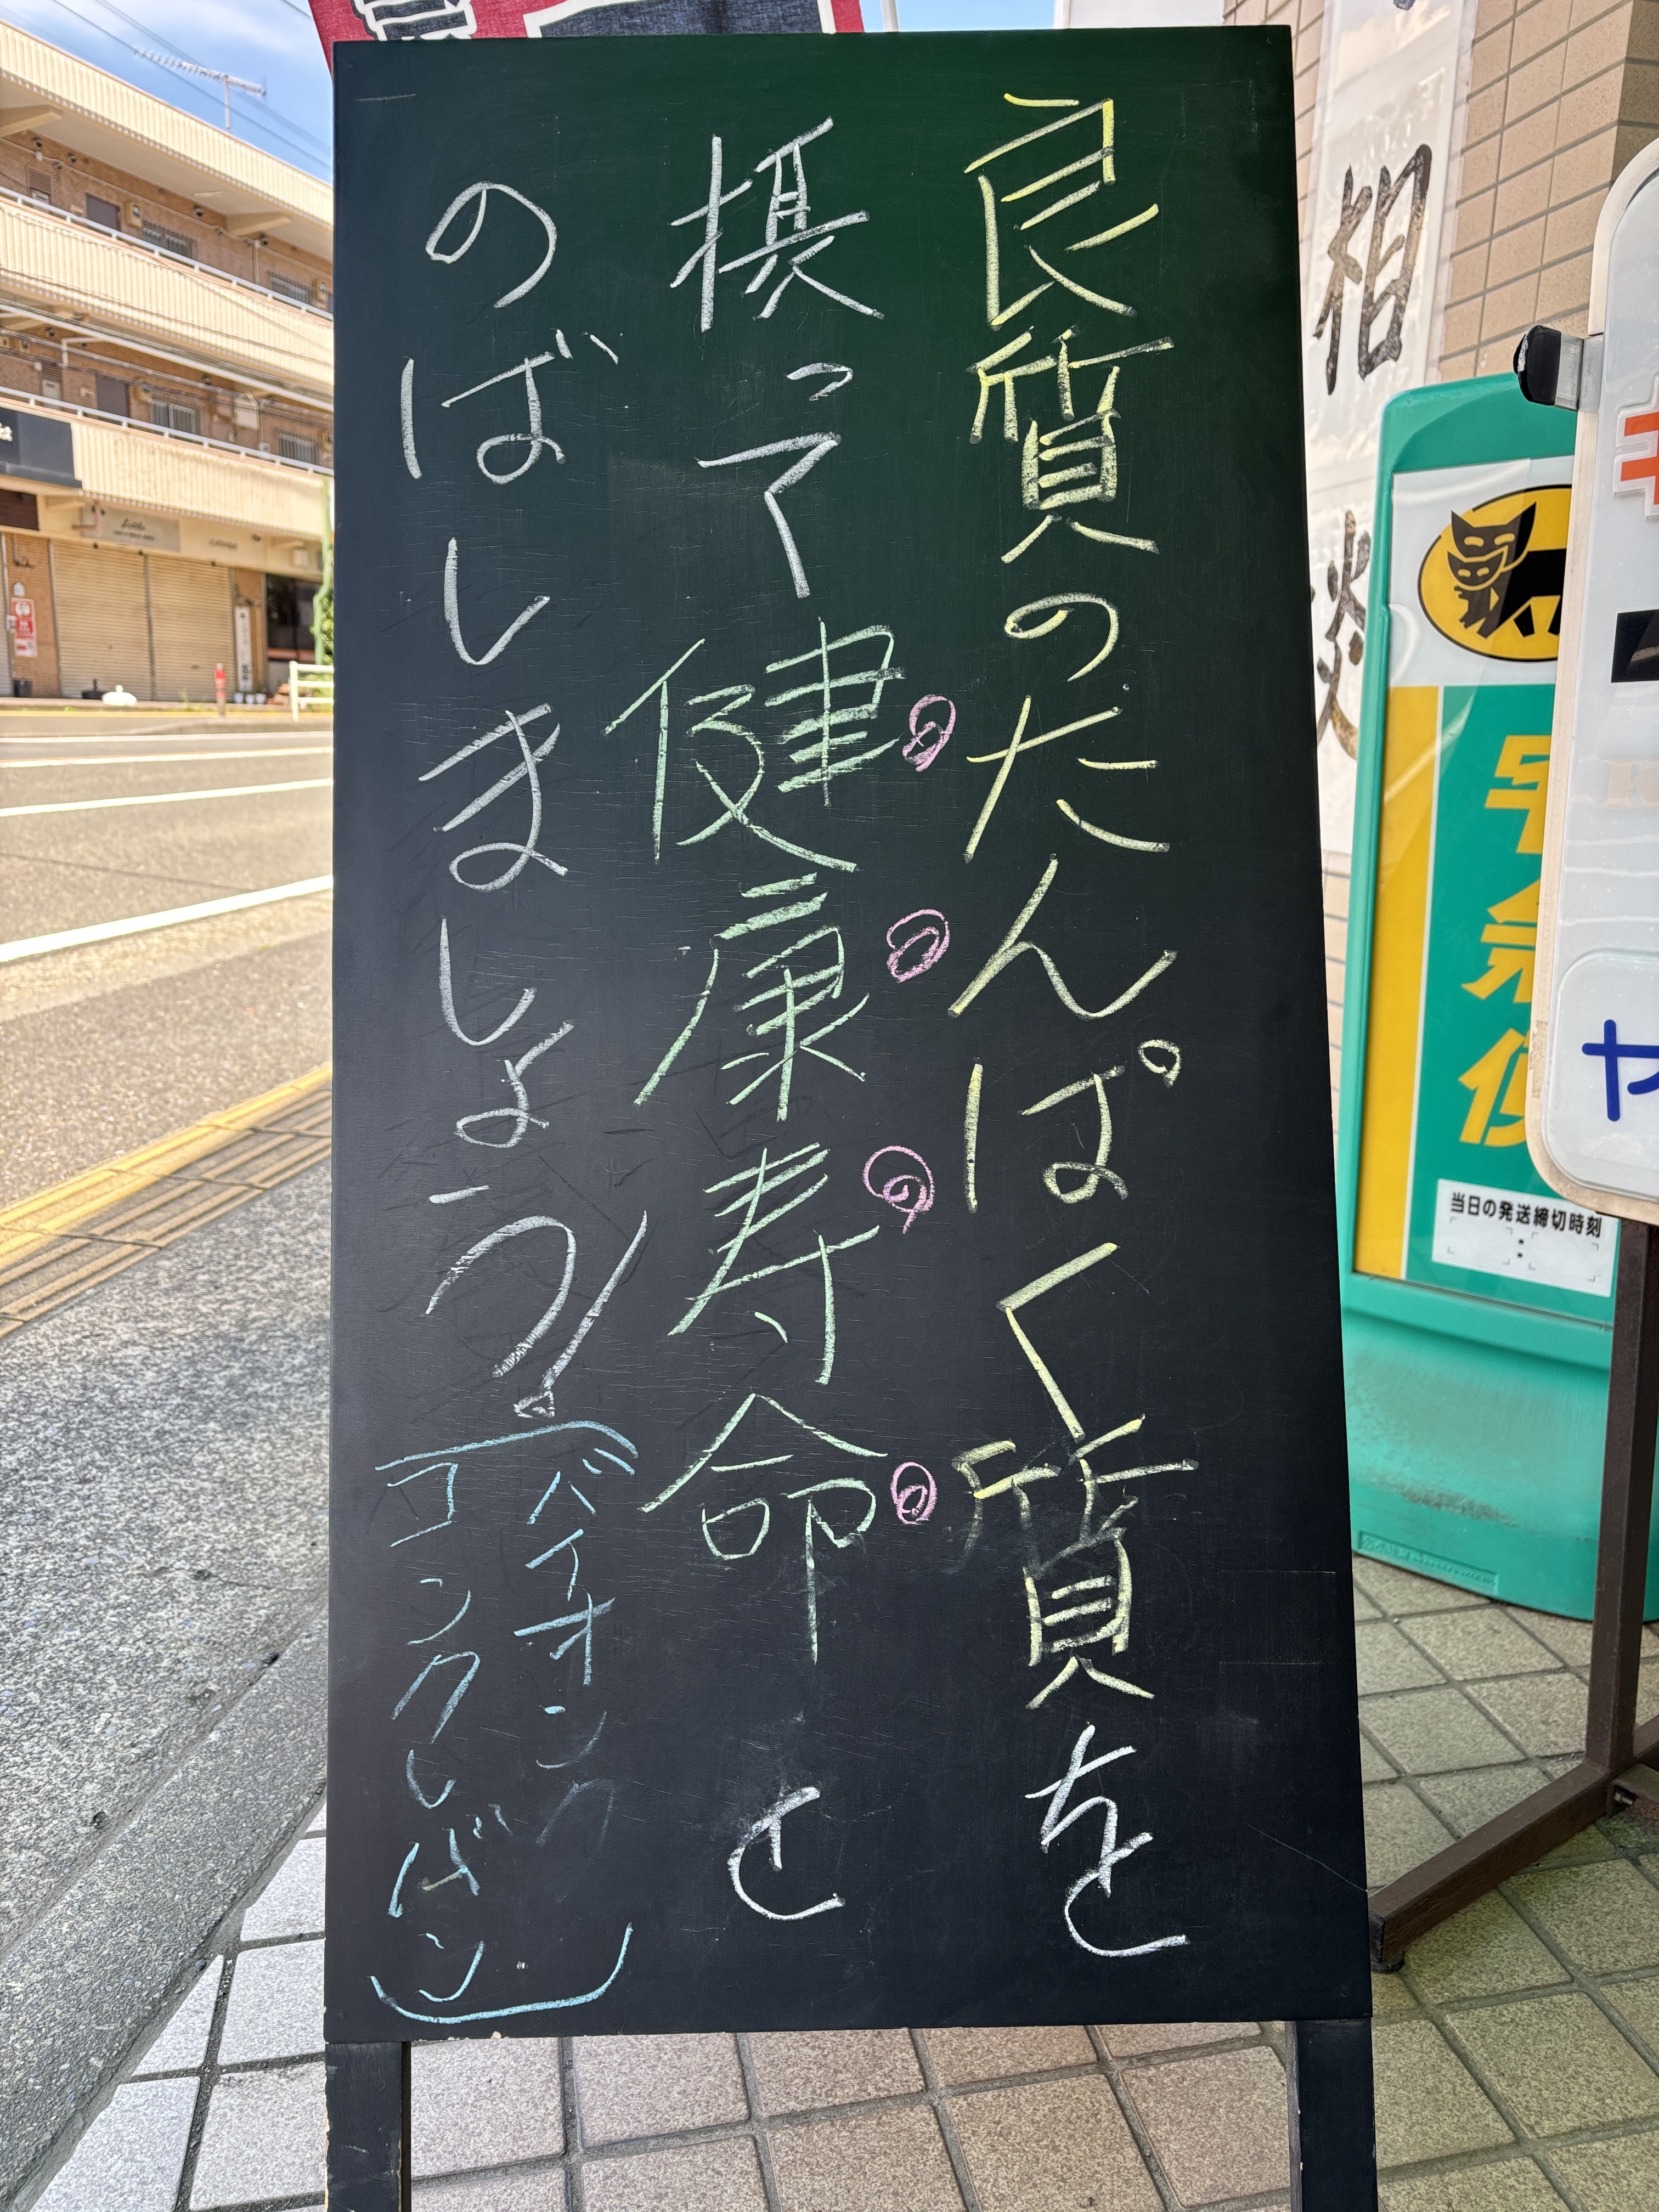 良質のたんぱく質を
摂って健康寿命と
のばしましょう!
(バイオリンク
コンクレバン)
相
談
宅急便
当日の発送締切時刻
:
ヤ